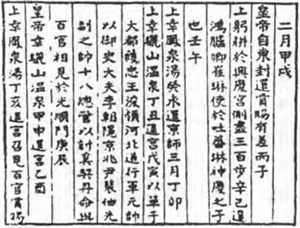 二月甲戌
皇帝自東封還賞賜有差丙子
上躬耕於興慶宮側盡三百步辛巳遣
鴻臚卿崔琳使於吐蕃琳神慶之子
也壬午
上幸鳳泉湯癸未還京師三月丁卯
上幸驪山温泉丁丑還宮戊寅以單于
大都護忠王浚領河北道行軍元帥
以御史大夫李朝隱京兆尹裴伷先
副之帥十八總管以討奚契丹命與
百官相見於光順門庚辰
皇帝幸驪山温泉甲申還宮乙酉
上幸鳳泉湯丁亥還宮召見百官賞